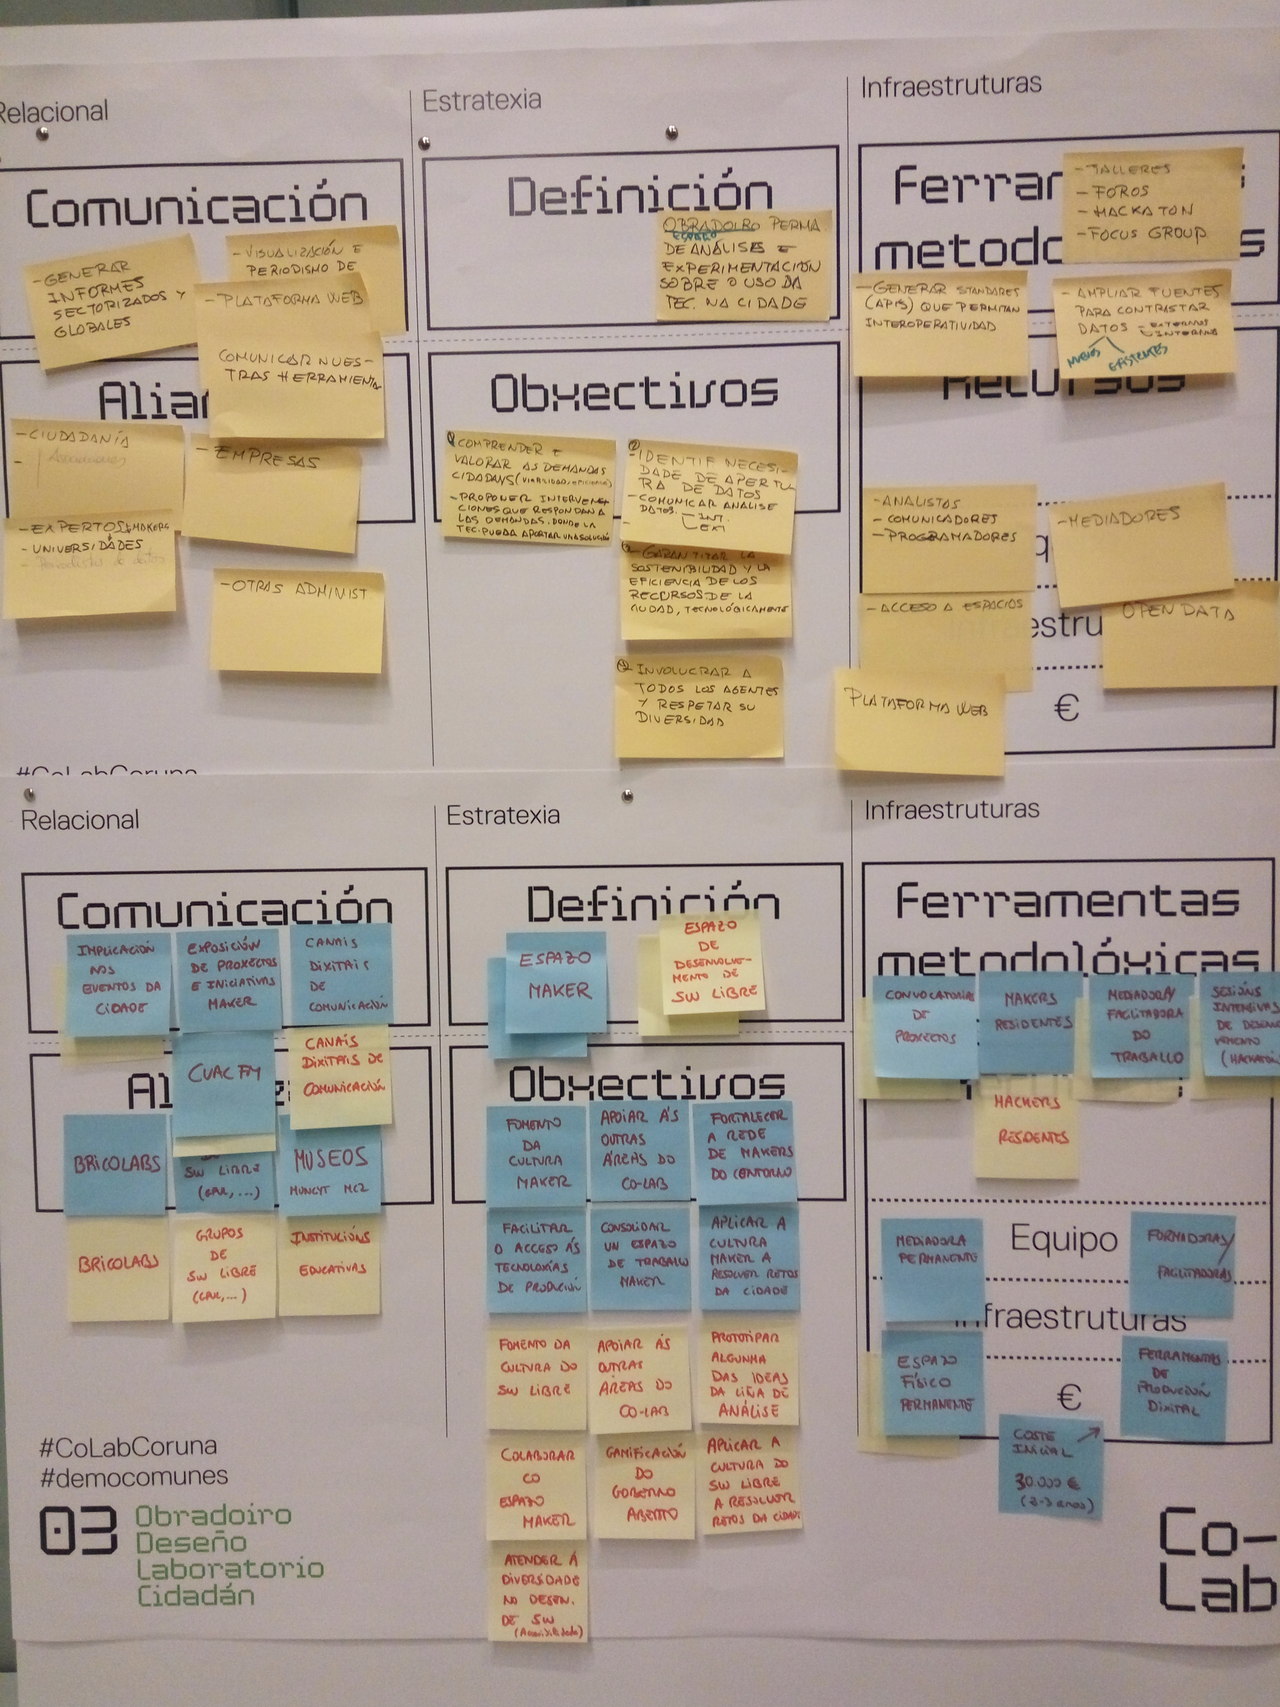 Relacional
Estratexia
Infraestruturas
Comunicación
- GENERAR
INFORMES
SECTORIZADOS Y
GLOBALES
- VISUALIZACIÓN E
PERIODISMO DE
- PLATAFORMA WEB
COMUNICAR NUES-
TRAS HERRAMIENTA
Alian
- CIUDADANÍA
-
- EMPRESAS
- EXPERTOS MAKERS
- UNIVERSIDADES
- Periodistas de datos
- OTRAS ADMINIST
#CoLabCoruna
Definición
OBRADOIRO PERMA
DE ANÁLISE E
EXPERIMENTACIÓN
SOBRE O USO DA
TEC. NA CIDADE
Obxectivos
① COMPRENDER E
VALORAR AS DEMANDAS
CIDADÁNS
- PROPOÑER INTERVEN-
CIONES QUE RESPONDAN A
LAS DEMANDAS, DONDE LA
TEC. PUEDA APORTAR UNA SOLUCIÓN
②
- IDENTIF NECESI-
DADE DE APERTU-
RA DE DATOS
- COMUNICAR ANÁLISE
DATOS. - INT.
EXT
-
- GARANTIZAR LA
SOSTENIBILIDAD Y LA
EFICIENCIA DE LOS
RECURSOS DE LA
CIUDAD, TECNOLÓGICAMENTE
- INVOLUCRAR A
TODOS LOS AGENTES
Y RESPETAR SU
DIVERSIDAD
Ferram
metodo
s
- TALLERES
- FOROS
- HACKATON
- FOCUS GROUP
- GENERAR STANDARES
(APIS) QUE PERMITAN
INTEROPERATIVIDAD
- AMPLIAR FUENTES
PARA CONTRASTAR
DATOS - EXTERNOS
- INTERNOS
NUEVOS EXISTENTES
Recursos
- ANALISTAS
- COMUNICADORES
- PROGRAMADORES
- MEDIADORES
- ACCESO A ESPACIOS
estru
OPEN DATA
PLATAFORMA WEB
€
Relacional
Estratexia
Infraestruturas
Comunicación
IMPLICACIÓN
NOS
EVENTOS DA
CIDADE
EXPOSICIÓN
DE PROXECTOS
E INICIATIVAS
MAKER
CANAIS
DIXITAIS
DE
COMUNICACIÓN
CUAC FM
CANAIS
DIXITAIS DE
COMUNICACIÓN
Al
BRICOLABS
DE
SW LIBRE
(GPUL, ...)
MUSEOS
MUNCYT MC2
BRICOLABS
GRUPOS
DE
SW LIBRE
(GPUL, ...)
INSTITUCIÓNS
EDUCATIVAS
Definición
ESPAZO
MAKER
ESPAZO
DE
DESENVOLVE-
MENTO DE
SW LIBRE
Obxectivos
FOMENTO
DA
CULTURA
MAKER
APOIAR ÁS
OUTRAS
ÁREAS DO
CO-LAB
FORTALECER
A REDE
DE MAKERS
DO CONTORNO
FACILITAR
O ACCESO ÁS
TECNOLOXÍAS
DE PRODUCIÓN
CONSOLIDAR
UN ESPAZO
DE TRABALLO
MAKER
APLICAR A
CULTURA
MAKER A
RESOLVER RETOS
DA CIDADE
FOMENTO DA
CULTURA DO
SW LIBRE
APOIAR ÁS
OUTRAS
ÁREAS DO
CO-LAB
PROTOTIPAR
ALGUNHA
DAS IDEAS
DA LIÑA DE
ANÁLISE
COLABORAR
CO
ESPAZO
MAKER
GAMIFICACIÓN
DO
GOBERNO
ABERTO
APLICAR A
CULTURA DO
SW LIBRE
A RESOLVER
RETOS DA CIDADE
ATENDER Á
DIVERSIDADE
NO DESENV.
DE SW
(Accesibilidade)
Ferramentas
metodolóxicas
CONVOCATORIAS
DE
PROXECTOS
MAKERS
RESIDENTES
MEDIADORA/
FACILITADORA
DO
TRABALLO
SESIÓNS
INTENSIVAS
DE DESENV
VEMENTO
(HACKATÓN
HACKERS
RESIDENTES
MEDIADORA
PERMANENTE
Equipo
FORMADORAS/
FACILITADORAS
Infraestruturas
ESPAZO
FÍSICO
PERMANENTE
€
FERRAMENTAS
DE
PRODUCIÓN
DIXITAL
COSTE
INICIAL
30.000 €
(2-3 anos)
#CoLabCoruna
#democomunes
03 Obradoiro
Deseño
Laboratorio
Cidadán
Co-
Lab